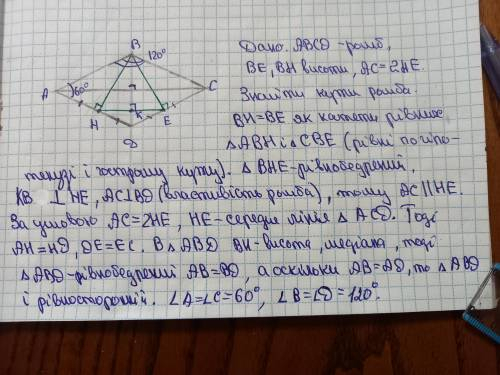 B
120°
A
60°
C
H
K
E
D
Дано. ABCD - ромб,
BE, BH висоти, AC=2HE.
Знайти кути ромба.
BH=BE як катети рівних
△ABH і △CBE (рівні по гіпо-
тенузі і гострому куту). △BHE-рівнобедрений,
KB ⊥ HE, AC⊥BD (властивість ромба), тому AC||HE.
За умовою AC=2HE, HE-середня лінія △ACD. Тоді
AH=HD, DE=EC. В △ABD BH-висота, медіана, тоді
△ABD-рівнобедрений AB=BD, а оскільки AB=AD, то △ABD
і рівносторонній. ∠A=∠C=60°, ∠B=∠D=120°.